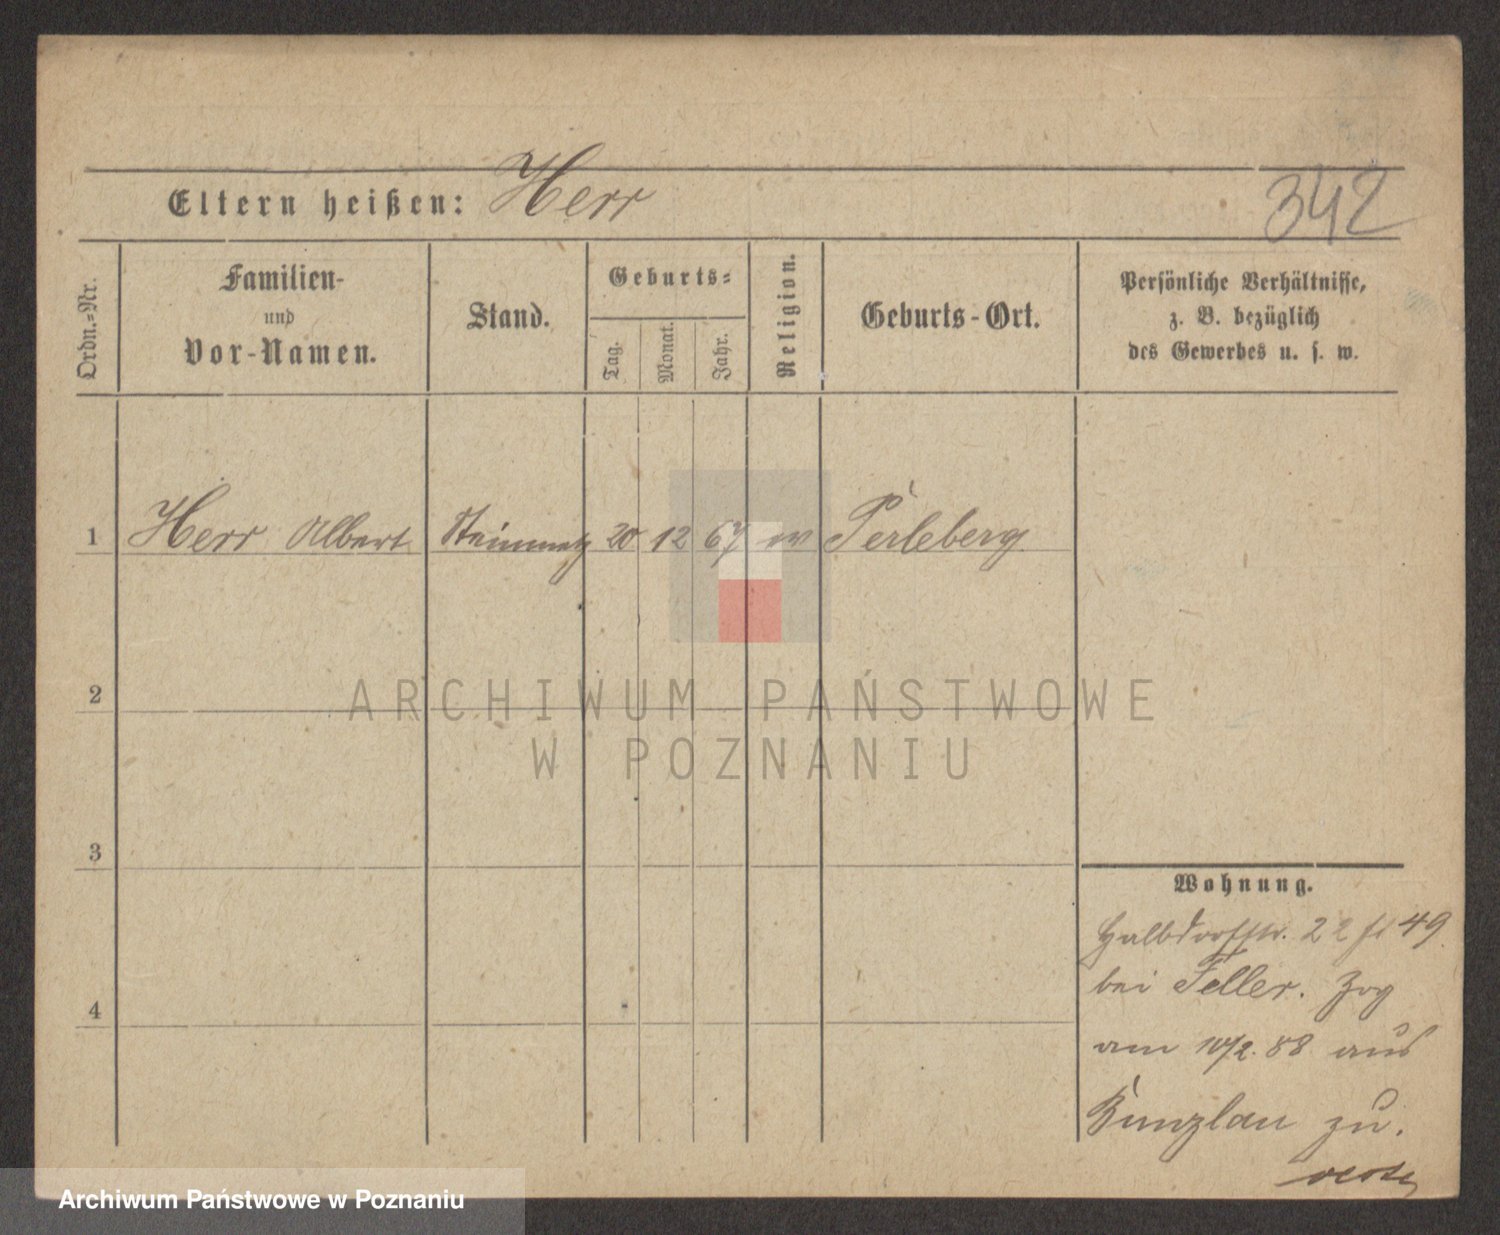 Eltern heißen: Herr
342
Ordn.-Nr.
Familien-
und
Vor-Namen.
Stand.
Geburts-
Tag.
Monat.
Jahr.
Religion.
Geburts-Ort.
Persönliche Verhältnisse,
z. B. bezüglich
des Gewerbes u. s. w.
1 Herr Albert Steinmetz 20 12 67 ev Perleberg
2
3
4
Wohnung.
Halbdorfstr. 22 49
bei Feller. Zog
am 10/2. 88 aus
Bunzlau zu.
ARCHIWUM PAŃSTWOWE
W POZNANIU
Archiwum Państwowe w Poznaniu